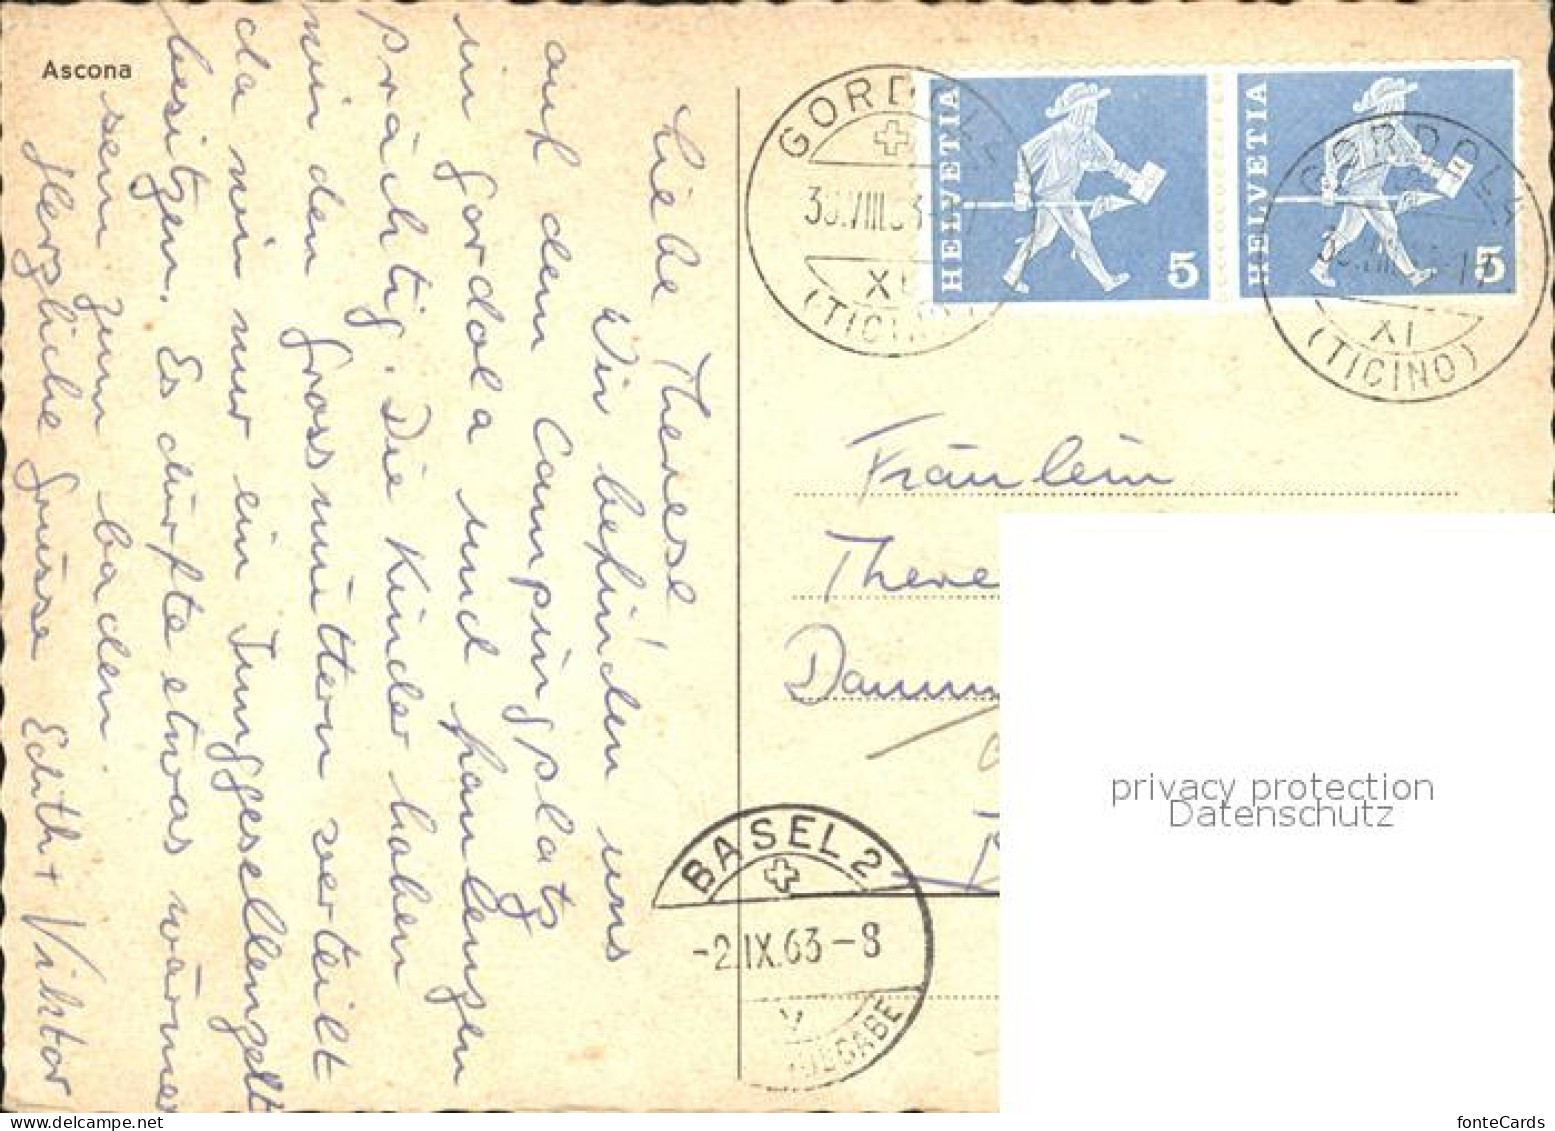 Ascona
Liebe Therese
Wir befinden uns
auf dem Campingplatz
in Gordola und faulenzen
prächtig. Die Kinder haben
wir den Grossmüttern verteilt
da wir nur ein Junggesellenzelt
besitzen. Es dürfte etwas wärmer
sein zum baden.
Herzliche Grüsse Edith + Viktor
GORDOLA
30.VIII.63-17
XI
(TICINO)
HELVETIA
5
HELVETIA
5
GORDOLA
30.VIII.63-17
XI
(TICINO)
Fräulein
There
Damm
BASEL 2
-2.IX.63-8
V
AUSGABE
privacy protection
Datenschutz
www.delcampe.net
fonteCards